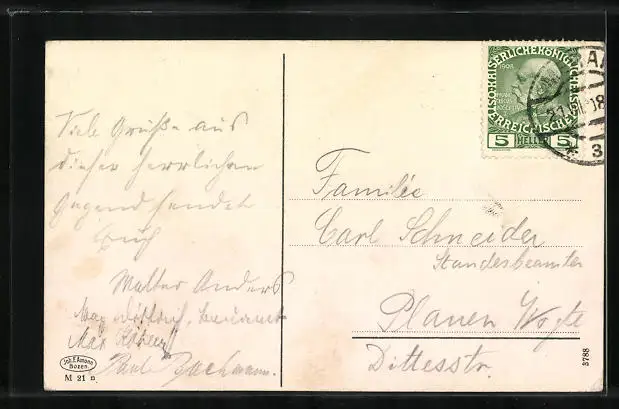 Viele Grüße aus
dieser herrlichen
Gegend sendet
Euch
Walter Anders
Max
Paul Bachmann.
Joh. F. Amonn
Bozen.
M 21 n
KAISERLICHE KÖNIGLICHE
ÖSTERREICHISCHE POST
1908
5 HELLER 5
21
08
3
Familie
Carl Schneider
Standesbeamter
Plauen Vogtl
Dittesstr.
3788